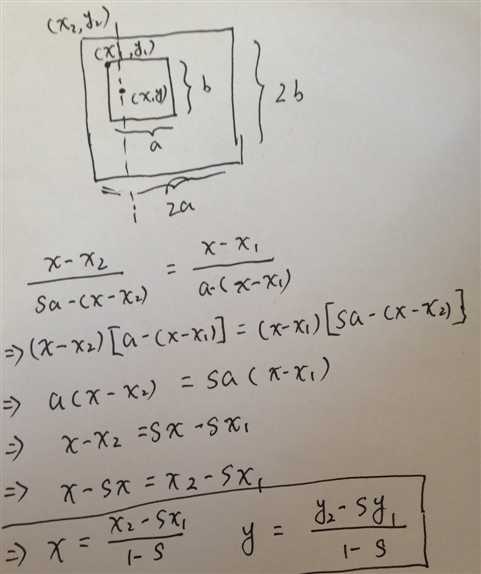 (x₂, y₂)
(x₁, y₁)
(x,y)
b
2b
a
2a
(x-x₂)/(Sa-(x-x₂)) = (x-x₁)/(a-(x-x₁))
⇒ (x-x₂)[a-(x-x₁)] = (x-x₁)[Sa-(x-x₂)]
⇒ a(x-x₂) = Sa(x-x₁)
⇒ x-x₂ = Sx-Sx₁
⇒ x-Sx = x₂-Sx₁
⇒ x = (x₂-Sx₁)/(1-S) y = (y₂-Sy₁)/(1-S)